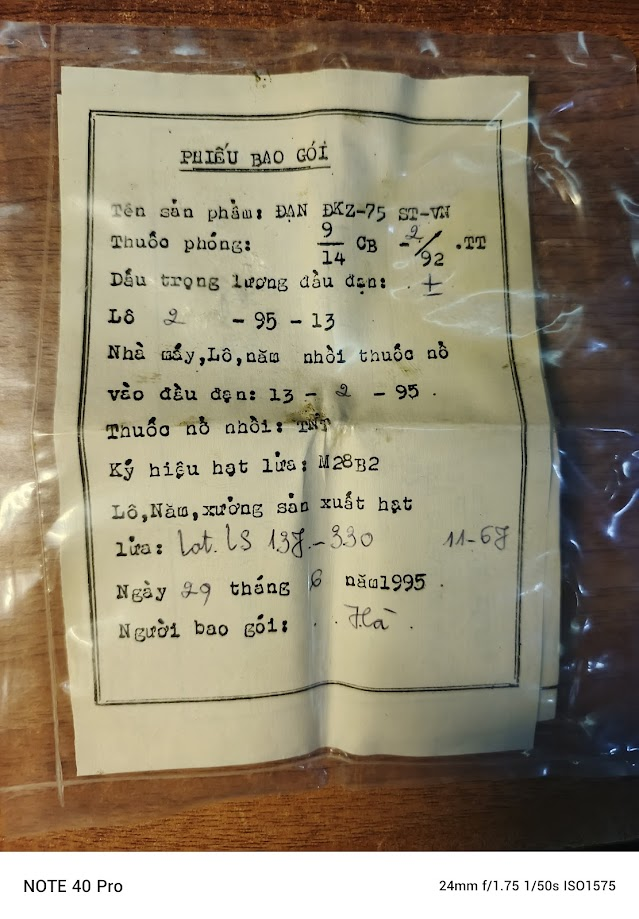 PHIẾU BAO GÓI
Tên sản phẩm: ĐẠN ĐKZ-75 ST-VN
Thuốc phóng: 9/14 CB - 2/92 .TT
Dấu trọng lượng đầu đạn: . ±
Lô 2 - 95 - 13
Nhà máy,Lô,năm nhồi thuốc nổ
vào đầu đạn: 13 - 2 - 95 .
Thuốc nổ nhồi: TNT
Ký hiệu hạt lửa: M28B2
Lô,Năm,xưởng sản xuất hạt
lửa: Lot. LS 137-330 11-67
Ngày 29 tháng 6 năm1995 .
Người bao gói: . . Hà .
NOTE 40 Pro
24mm f/1.75 1/50s ISO1575